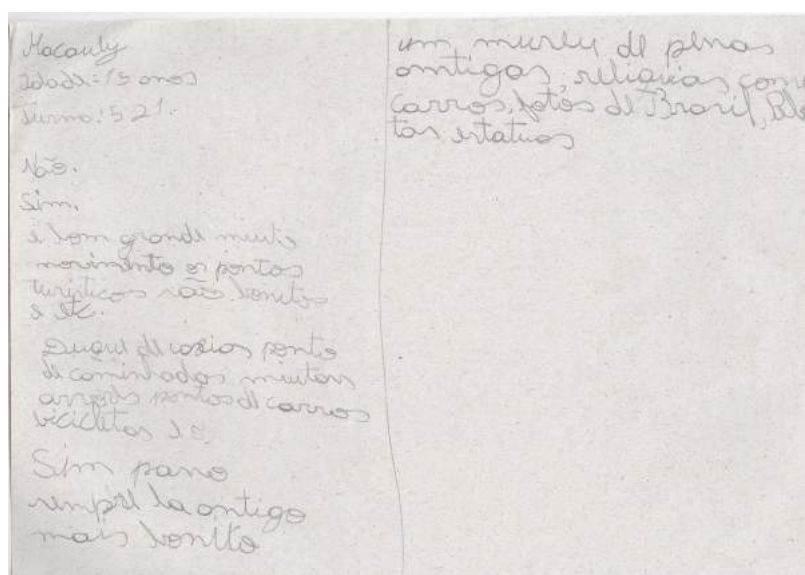 Macauly
Idade: 15 anos
Turma: 521.
Não.
Sim.
é bom grande muito
movimento os pontos
turísticos são bonitos
e etc.
Duque de caxias ponto
de caminhados muitas
pontos de carros
bicicletas
Sim paro
sempre la antigo
mais bonito
um museu de penas
antigas, reliquias, como
carros, fotos de Brasil,
tas estatuas